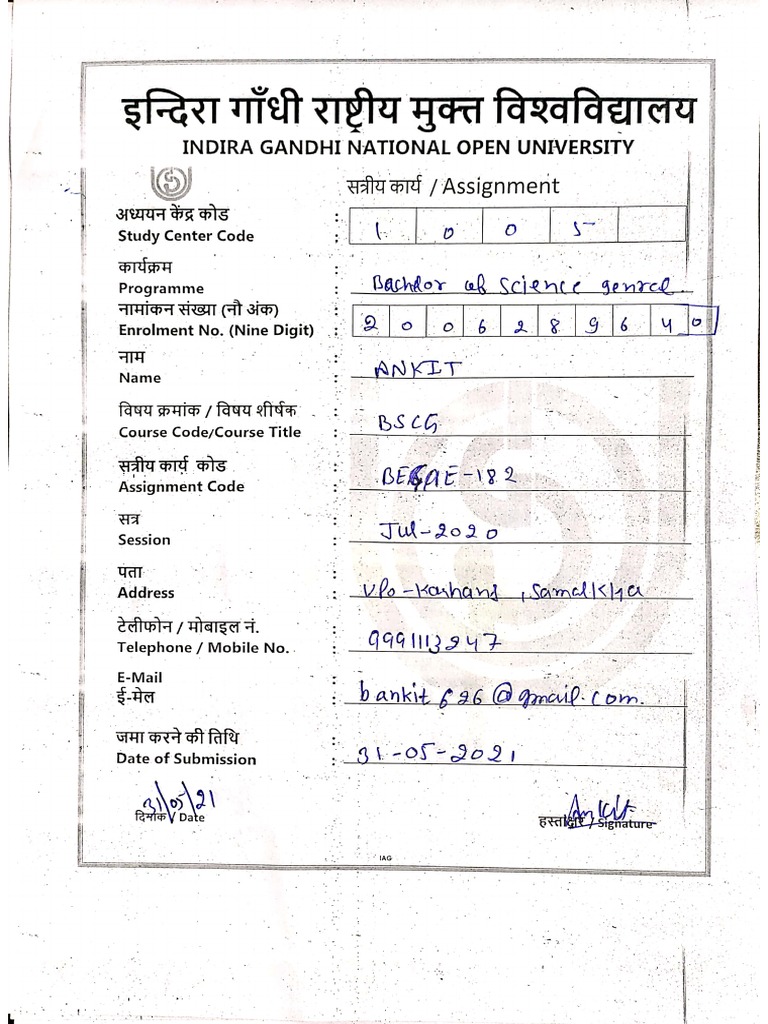 इन्दिरा गाँधी राष्ट्रीय मुक्त विश्वविद्यालय
INDIRA GANDHI NATIONAL OPEN UNIVERSITY
सत्रीय कार्य / Assignment
अध्ययन केंद्र कोड
Study Center Code : 1 0 0 5
कार्यक्रम
Programme : Bachelor of Science genrel
नामांकन संख्या (नौ अंक)
Enrolment No. (Nine Digit) : 2 0 0 6 2 8 9 6 4 0
नाम
Name : ANKIT
विषय क्रमांक / विषय शीर्षक
Course Code/Course Title : BSCG
सत्रीय कार्य कोड
Assignment Code : -182
सत्र
Session : Jul-2020
पता
Address : VPO - , Samalkha
टेलीफोन / मोबाइल नं.
Telephone / Mobile No. : 9991113247
E-Mail
ई-मेल : bankit626@gmail.com.
जमा करने की तिथि
Date of Submission : 31-05-2021
31/05/21 Ankit
दिनांक / Date हस्ताक्षर / Signature
IAG